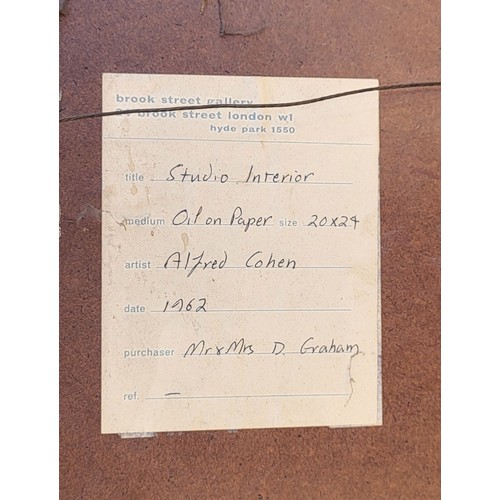 brook street gallery
brook street london w1
hyde park 1550
title Studio Interior
medium Oil on Paper size 20x24
artist Alfred Cohen
date 1962
purchaser Mr & Mrs D. Graham
ref. –